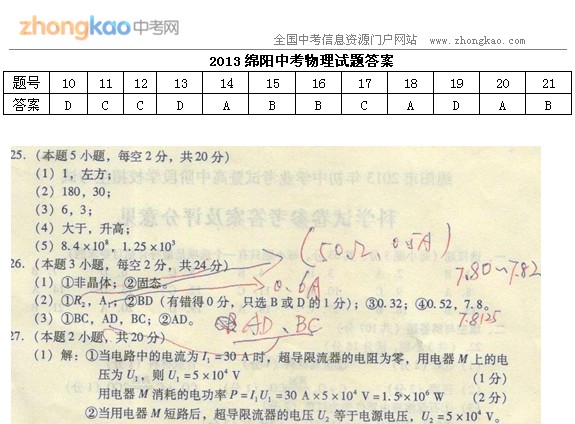 zhongkao中考网
全国中考信息资源门户网站 www.zhongkao.com
2013 绵阳中考物理试题答案
题号 10 11 12 13 14 15 16 17 18 19 20 21
答案 D C C D A B B C A D A B
25. (本题5小题,每空2分,共20分)
(1) 1,左方;
(2) 180,30;
(3) 6,3;
(4) 大于,升高;
(5) 8.4×10⁸,1.25×10³
(50Ω 0.5A)
26. (本题3小题,每空2分,共24分)
7.80~7.82
(1) ①非晶体;②固态。
0.6A
(2) ①R₂,A₁,②BD(有错得0分,只选B或D的1分);③0.32;④0.52,7.8。
7.8125
(3) ①BC,AD,BC;②AD。
AD、BC
27. (本题2小题,共20分)
(1) 解:①当电路中的电流为I₁=30 A时,超导限流器的电阻为零,用电器M上的电
压为U₁,则U₁=5×10⁴V (1分)
用电器M消耗的电功率P=I₁U₁=30 A×5×10⁴V=1.5×10⁶W (2分)
②当用电器M短路后,超导限流器的电压U₂等于电源电压,U₂=5×10⁴V。